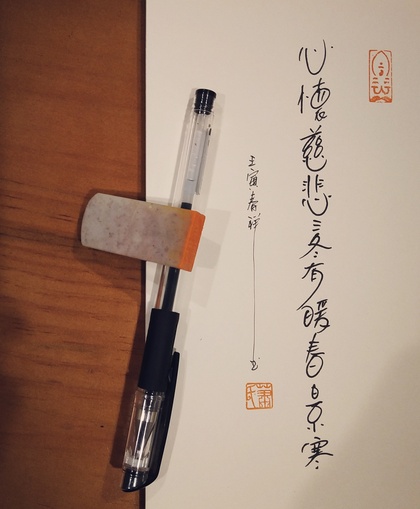 心懷慈悲三冬有暖春日寒
壬寅春祥书